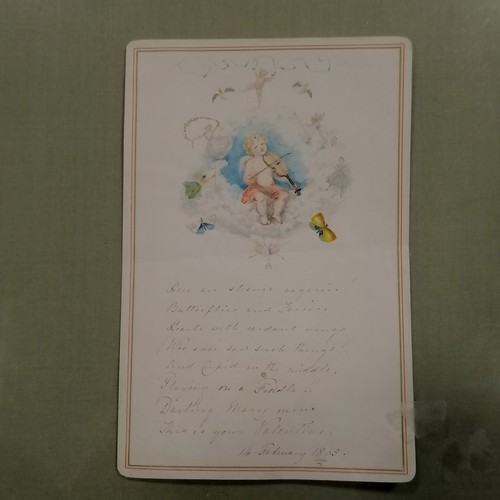 Here are
Butterflies and Fairies
Hearts with verdant wings
Who ever saw such things!
And Cupid in the middle,
Playing on a Fiddle!
Darling Mary mine
This is your Valentine.
14 February